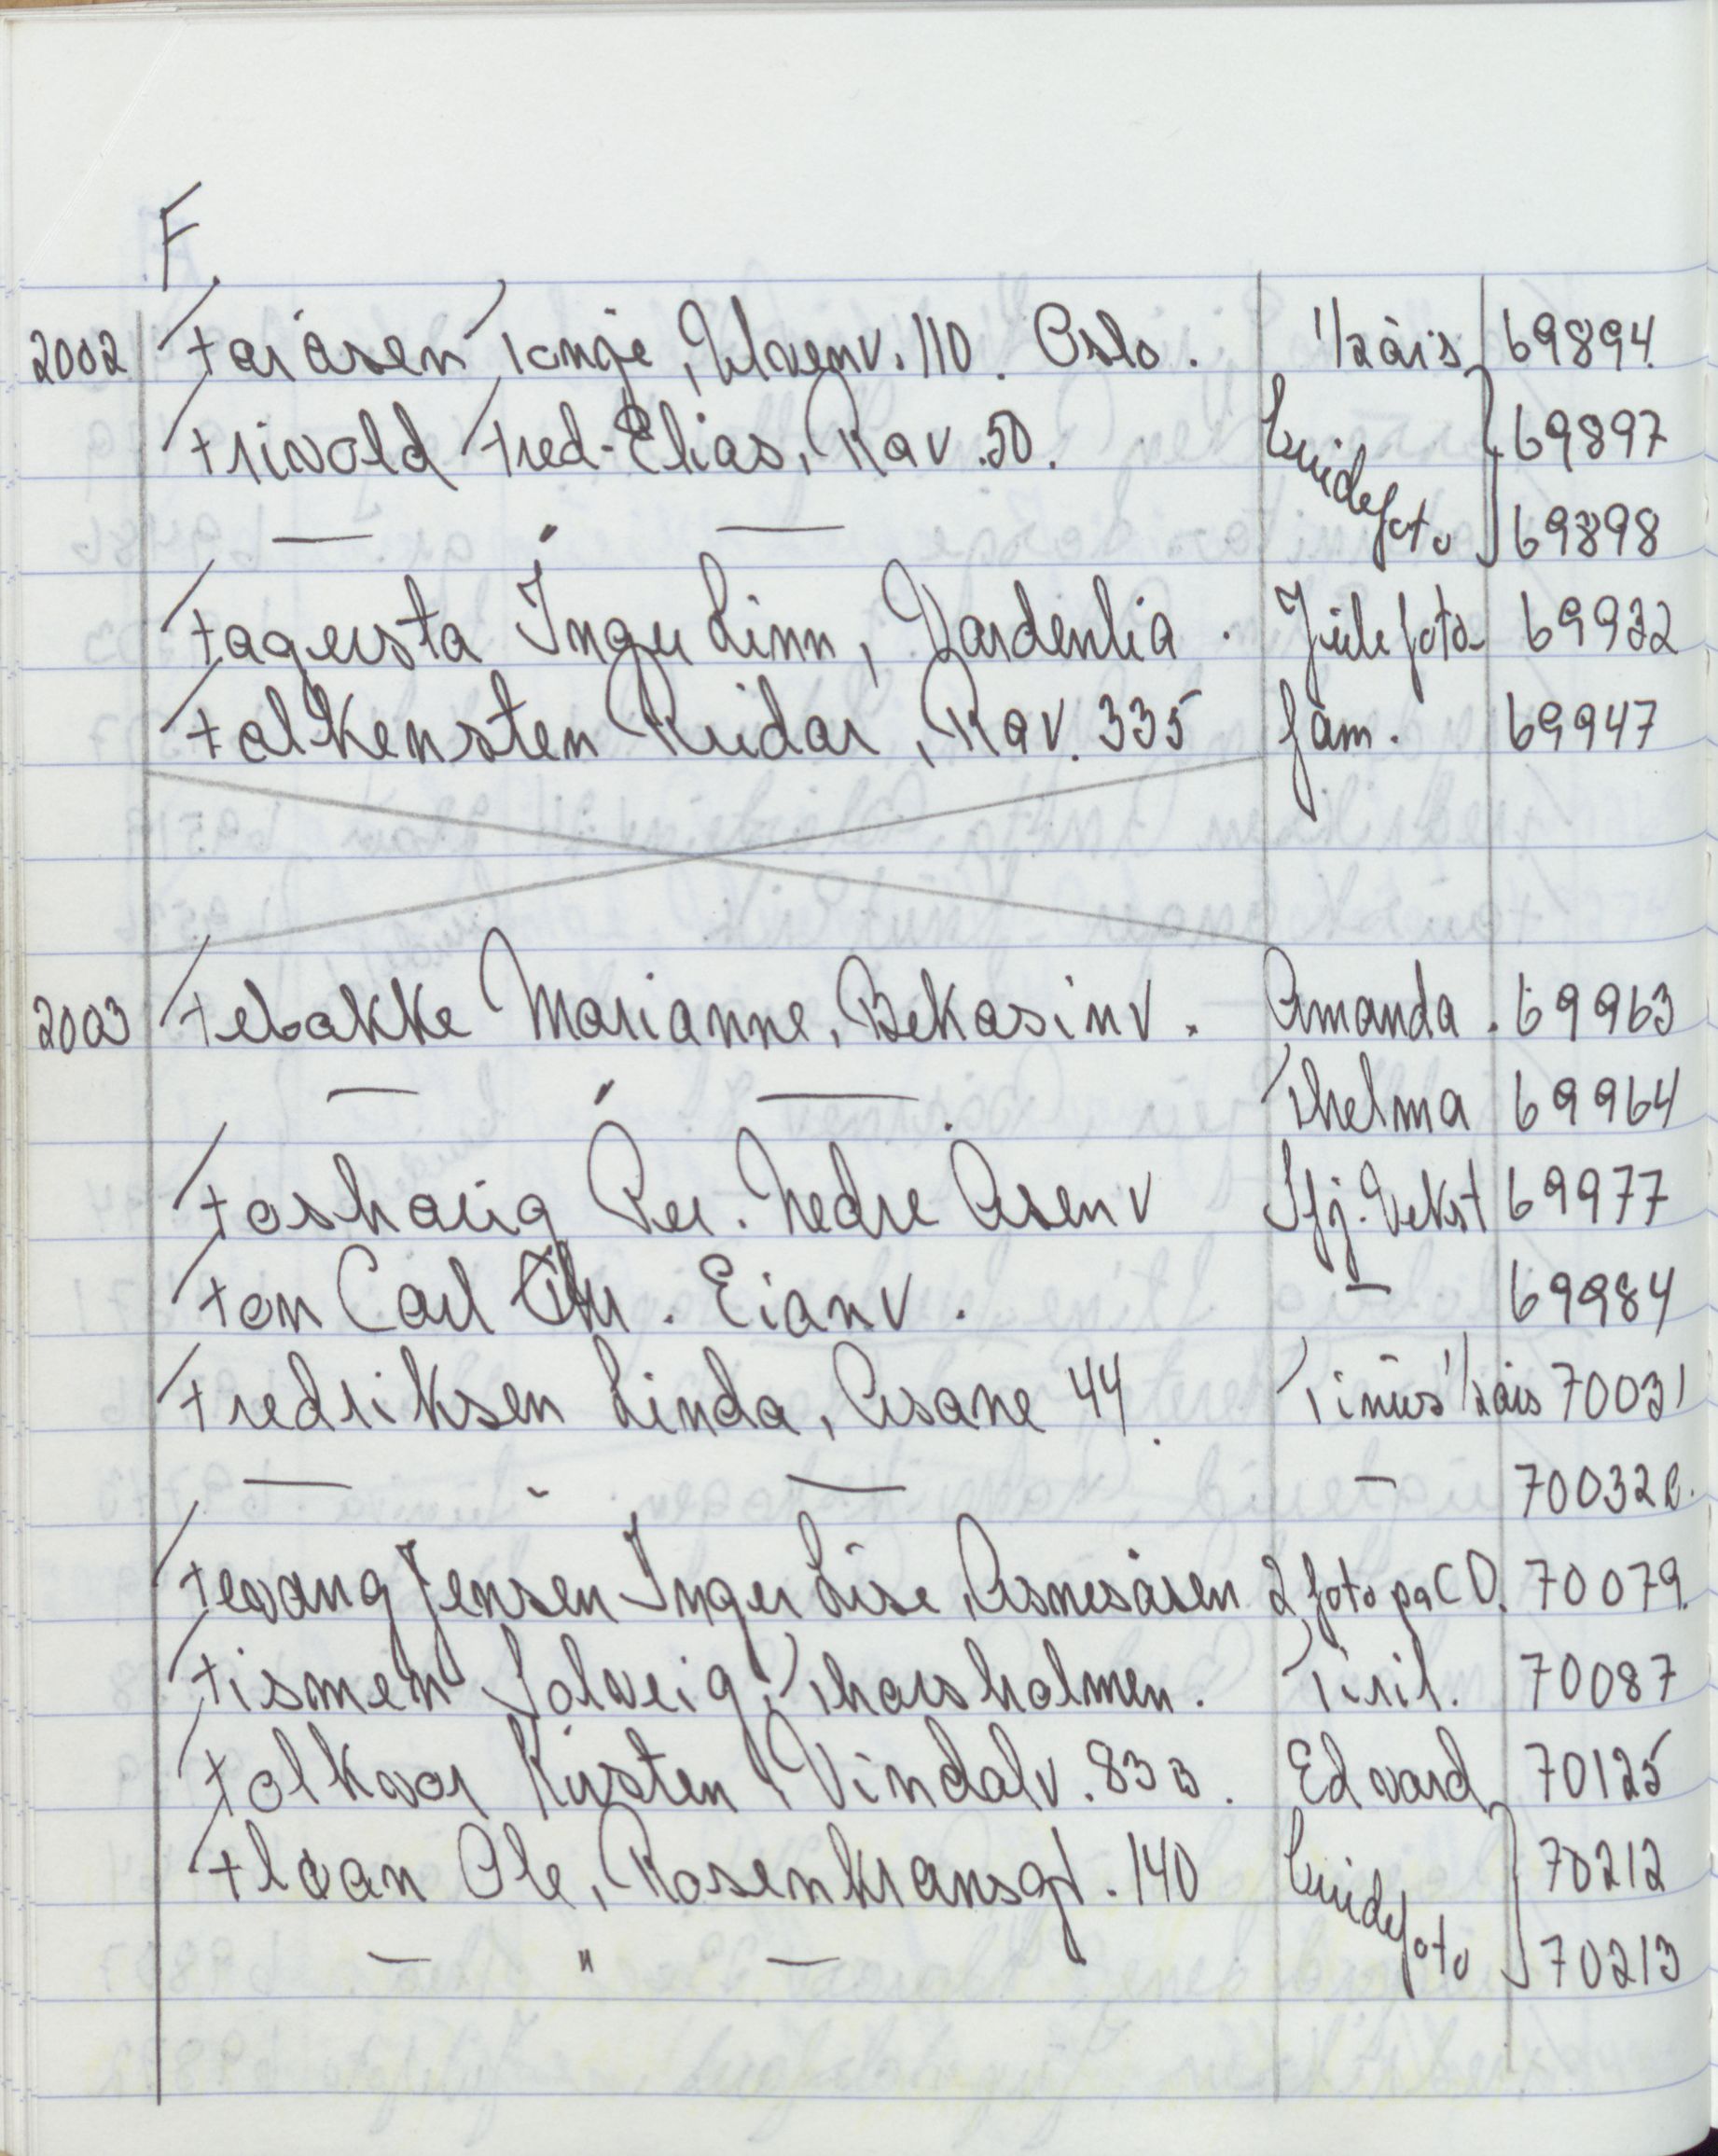 F.
2002 Faråsen Tonje, Ulvenv. 110. Oslo. 1/2 års 69894.
Frivold Fred-Elias, Rav. 50. brudefoto 69897
— " — 69898
Fagersta Inger Linn, Vardenlia. Julefoto 69932
Falkensten Reidar, Rav. 335 fam. 69947
2003 Febakke Marianne, Bekasinv. Amanda. 69963
— " — . Thelma 69964
Foshaug Per. Nedre Åsenv Sfj. Vekst 69977
Fon Carl Chr. Eianv. — 69984
Fredriksen Linda, Åsane 44. Tinius 1/2 års 70031
— " — — 70032 B.
Fevang Jensen Inger Lise, Åsnesåsen 2 foto på CD. 70079.
Fismen Solveig, Thorsholmen. Tiril. 70087
Folkvor Kirsten, Vindalv. 83 B. Edvard 70125
Floan Ole, Rosenkransgt. 140 brudefoto 70212
— " — 70213